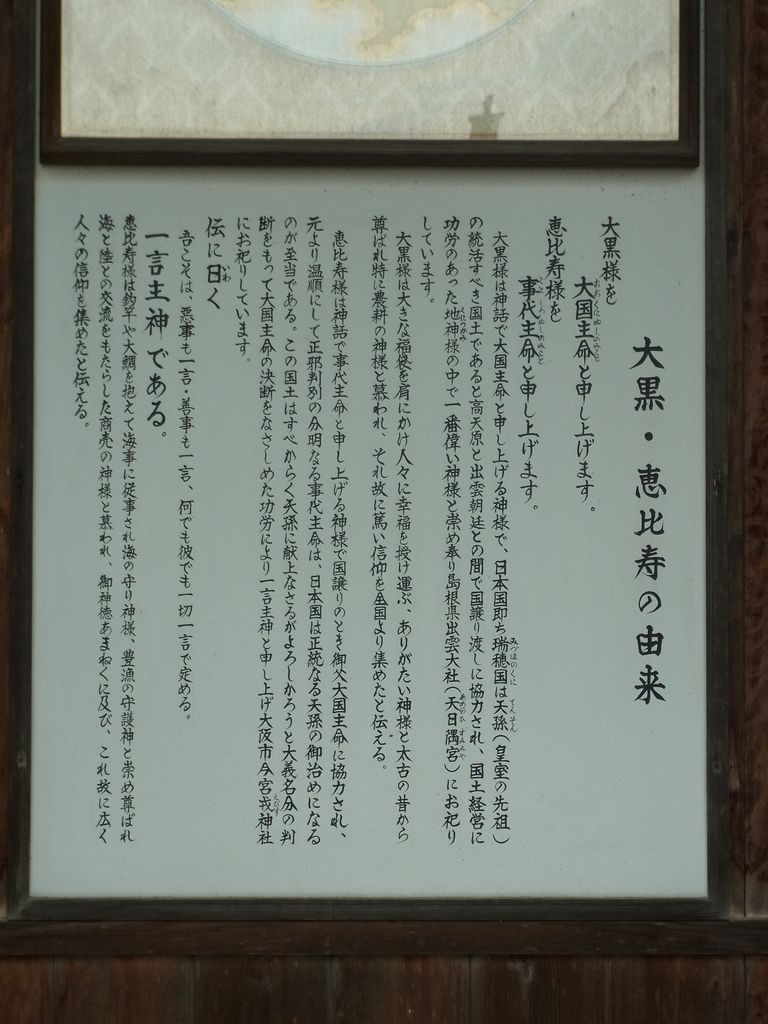 大黒・恵比寿の由来
大黒様を
大国主命と申し上げます。
恵比寿様を
事代主命と申し上げます。
大黒様は神話で大国主命と申し上げる神様で、日本国即ち瑞穂国は天孫(皇室の先祖)
の統活すべき国土であると高天原と出雲朝廷との間で国譲り渡しに協力され、国土経営に
功労のあった地神様の中で一番偉い神様と崇め奉り島根県出雲大社(天日隅宮)にお祀り
しています。
大黒様は大きな福袋を肩にかけ人々に幸福を授け運ぶ、ありがたい神様と太古の昔から
尊ばれ特に農耕の神様と慕われ、それ故に篤い信仰を全国より集めたと伝える。
恵比寿様は神話で事代主命と申し上げる神様で国譲りのとき御父大国主命に協力され、
元より温順にして正邪判別の分明なる事代主命は、日本国は正統なる天孫の御治めになる
のが至当である。この国土はすべからく天孫に献上なさるがよろしかろうと大義名分の判
断をもって大国主命の決断をなさしめた功労により一言主神と申し上げ大阪市今宮戎神社
にお祀りしています。
伝に曰く
吾こそは、悪事も一言・善事も一言、何でも彼でも一切一言で定める。
一言主神である。
恵比寿様は釣竿や大鯛を抱えて海事に従事され海の守り神様、豊漁の守護神と崇め尊ばれ
海と陸との交流をもたらした商売の神様と慕われ、御神徳あまねくに及び、これ故に広く
人々の信仰を集めたと伝える。